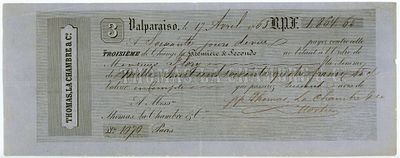 THOMAS, LA CHAMBRE & Cº.
3 Valparaiso, le 17 Avril 1865 B.P.F. 1.864.65
A Soixante jours de vue payez contre cette
TROISIÈME de Change la Première & Seconde ne l'étant à l'Ordre de
la Somme
de Mille huit cent soixante quatre francs 65
valeur en compte que passerez suivant avis de
A Mess
Thomas La Chambre & Cº
pp Thomas, La Chambre & Co
Nº 1070 Paris
THOMAS LA CHAMBRE & Cº